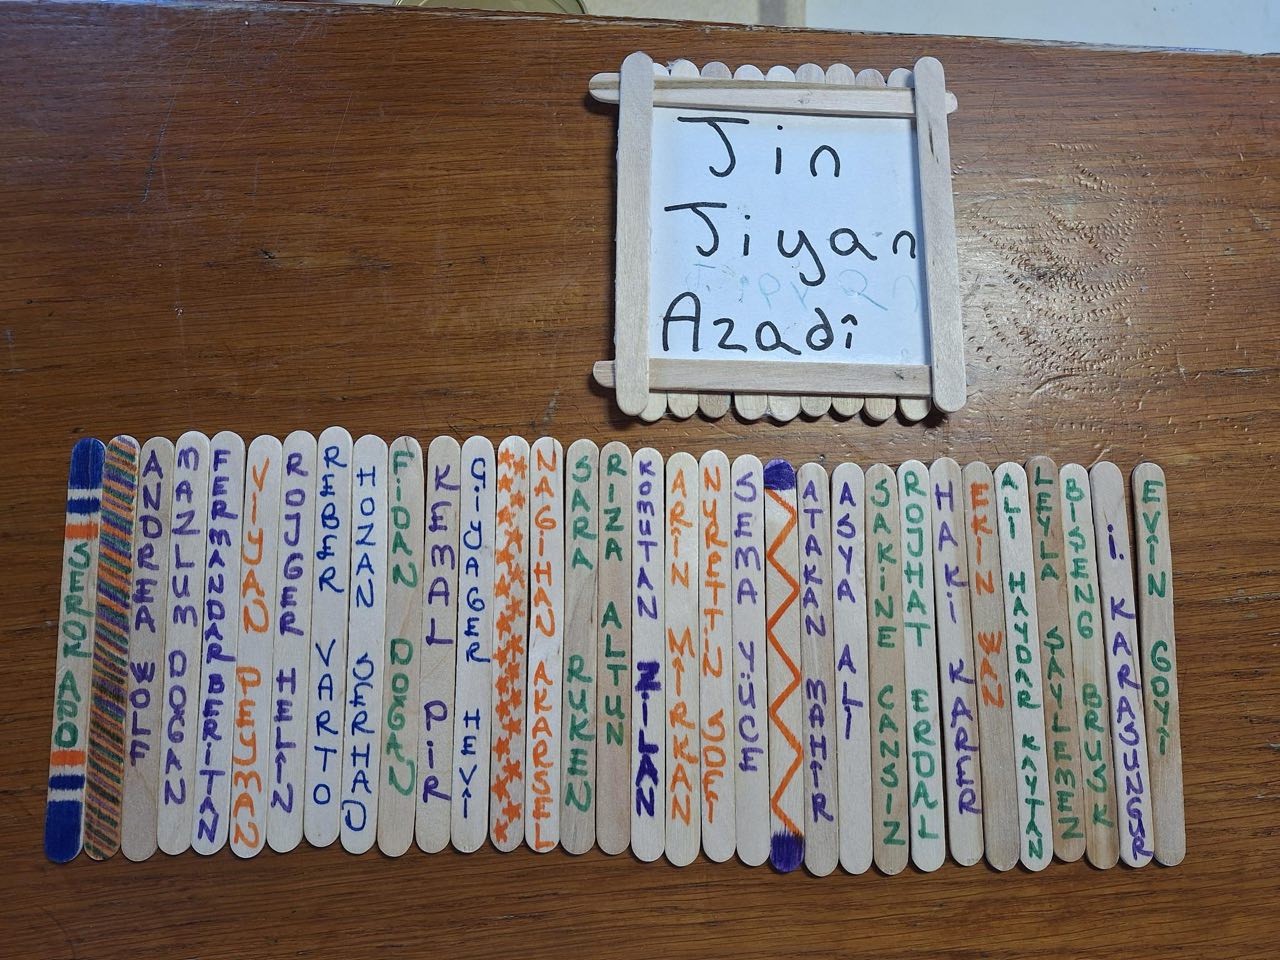 Jin
Jiyan
Azadî
SEROK APO
ANDREA WOLF
MAZLUM DOGAN
FERMANDAR BERITAN
VIYAN PEYMAN
ROJGER HELIN
REBER VARTO
HOZAN SERHAD
FIDAN DOGAN
KEMAL PIR
CIYAGER HEVI
NAGIHAN AKARSEL
SARA RUKEN
RIZA ALTUN
KOMUTAN ZILAN
ARIN MIRKAN
NURETTIN SOFI
SEMA YÜCE
ATAKAN MAHIR
ASYA ALI
SAKINE CANSIZ
ROJHAT ERDAL
HAKI KARER
EKIN WAN
ALI HAYDAR KAYTAN
LEYLA SAYLEMEZ
BISENG BRUSK
I. KARASUNGUR
EVIN GOYI